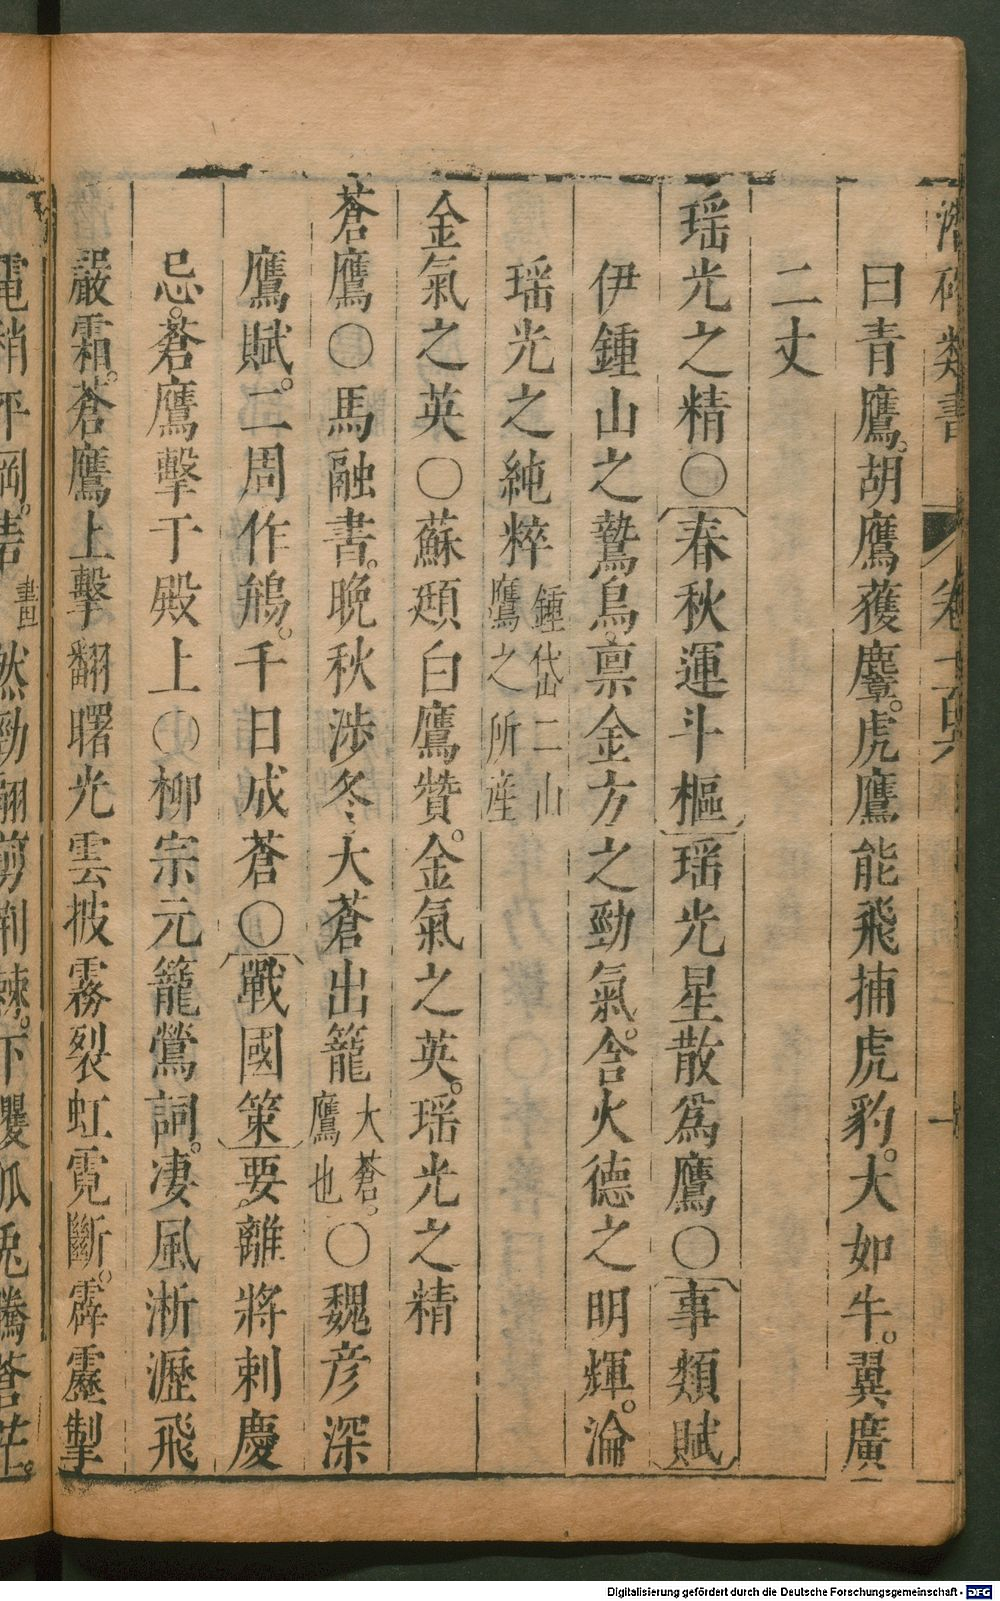 潛確類書 卷一百
曰青鷹。胡鷹獲麞。虎鷹能飛捕虎豹。大如牛。翼廣
二丈
瑶光之精〇春秋運斗樞瑶光星散爲鷹〇事類賦
伊鍾山之鷙鳥。禀金方之勁氣。含火德之明輝。淪
瑶光之純粹鍾岱二山鷹之所産
金氣之英〇蘇頲白鷹贊。金氣之英。瑶光之精
蒼鷹〇馬融書。晩秋涉冬。大蒼出籠大蒼。鷹也〇魏彦深
鷹賦。二周作鵃。千日成蒼〇戰國策要離將刺慶
忌。蒼鷹擊于殿上〇柳宗元籠鶯詞。凄風淅瀝飛
嚴霜。蒼鷹上擊翻曙光雲披霧裂虹霓斷。霹靂掣
電捎平岡。砉然勁翮剪荆棘。下攫狐兎騰蒼茫。
Digitalisierung gefördert durch die Deutsche Forschungsgemeinschaft - DFG